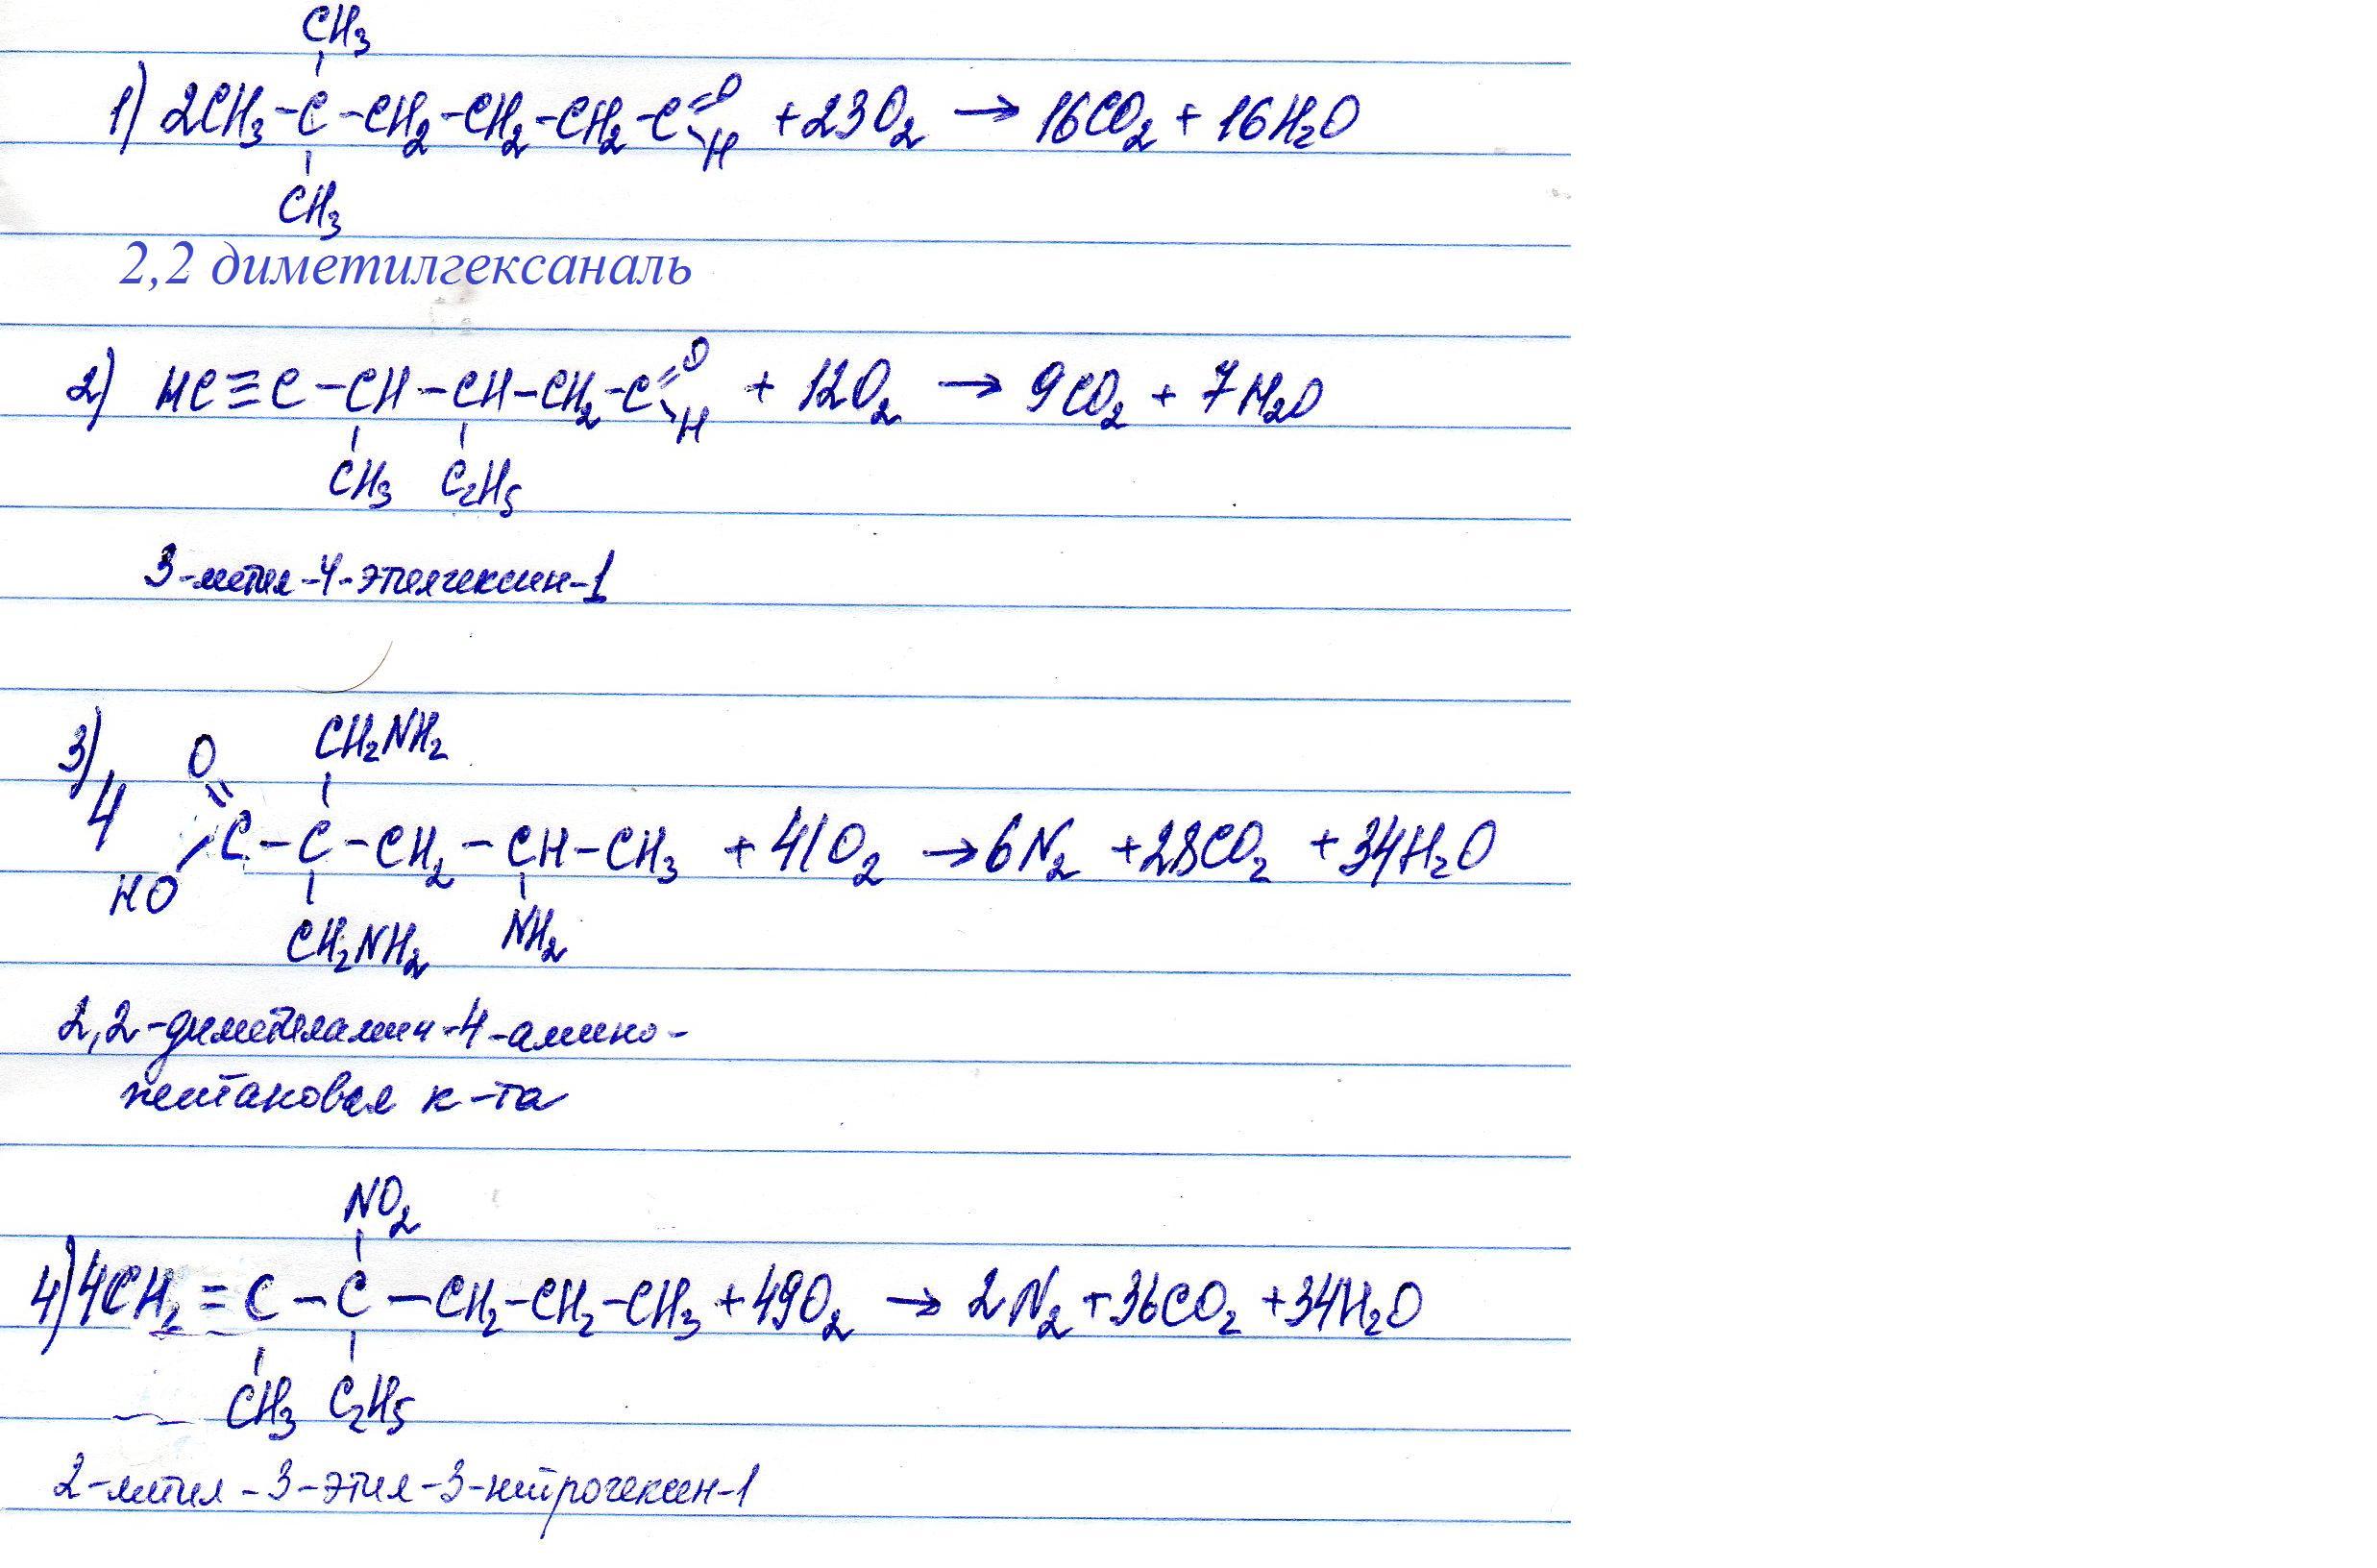 CH₃
1) 2CH₃-C-CH₂-CH₂-CH₂-C=O H +23O₂ → 16CO₂ + 16H₂O
CH₃
2,2 диметилгексаналь
2) HC≡C-CH-CH-CH₂-C=O H + 12O₂ → 9CO₂ + 7H₂O
CH₃ C₂H₅
3-метил-4-этилгексин-1
3) O CH₂NH₂
4 C-C-CH₂-CH-CH₃ + 41O₂ → 6N₂ +28CO₂ +34H₂O
HO CH₂NH₂ NH₂
2,2-диметиламин-4-амино-
пентановая к-та
NO₂
4) 4CH₂=C-C-CH₂-CH₂-CH₃ +49O₂ → 2N₂+36CO₂ +34H₂O
CH₃ C₂H₅
2-метил-3-этил-3-нитрогексен-1